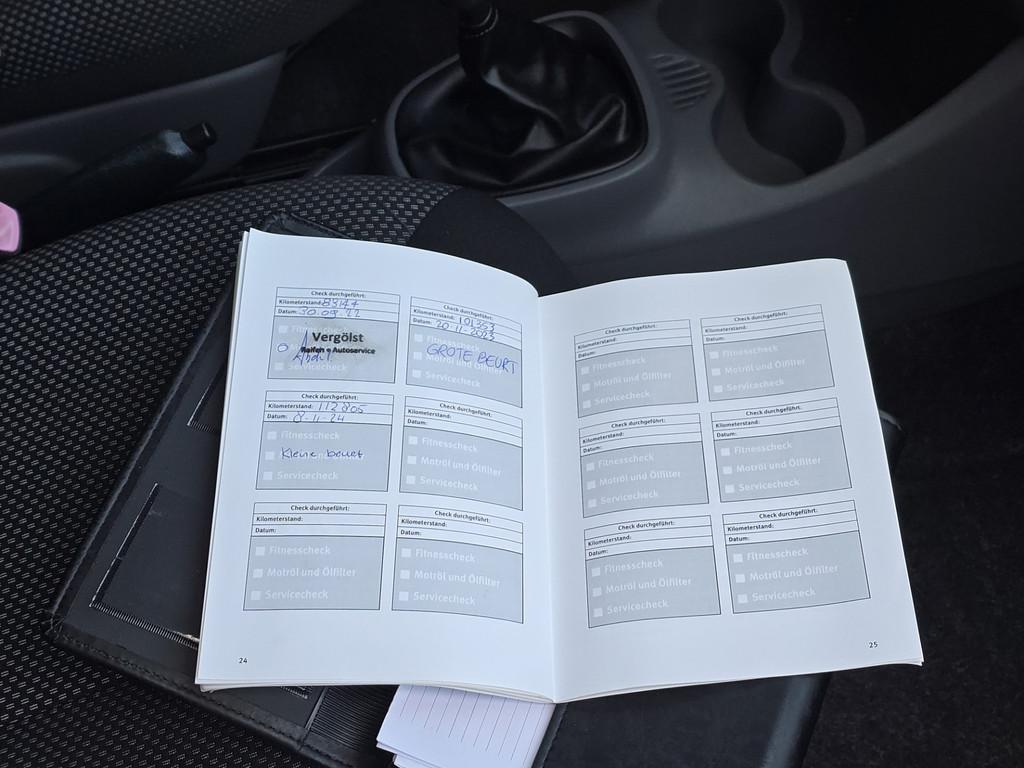 Check durchgeführt:
Kilometerstand: 83147
Datum: 30.09.22
Fitnesscheck
Vergölst
Reifen + Autoservice
Servicecheck
Check durchgeführt:
Kilometerstand: 101353
Datum: 20-11-2023
Fitnesscheck
GROTE BEURT
Motröl und Ölfilter
Servicecheck
Check durchgeführt:
Kilometerstand: 112805
Datum: 8-11-24
Fitnesscheck
Kleine beurt
Servicecheck
Check durchgeführt:
Kilometerstand:
Datum:
Fitnesscheck
Motröl und Ölfilter
Servicecheck
Check durchgeführt:
Kilometerstand:
Datum:
Fitnesscheck
Motröl und Ölfilter
Servicecheck
Check durchgeführt:
Kilometerstand:
Datum:
Fitnesscheck
Motröl und Ölfilter
Servicecheck
24
Check durchgeführt:
Kilometerstand:
Datum:
Fitnesscheck
Motröl und Ölfilter
Servicecheck
Check durchgeführt:
Kilometerstand:
Datum:
Fitnesscheck
Motröl und Ölfilter
Servicecheck
Check durchgeführt:
Kilometerstand:
Datum:
Fitnesscheck
Motröl und Ölfilter
Servicecheck
Check durchgeführt:
Kilometerstand:
Datum:
Fitnesscheck
Motröl und Ölfilter
Servicecheck
Check durchgeführt:
Kilometerstand:
Datum:
Fitnesscheck
Motröl und Ölfilter
Servicecheck
Check durchgeführt:
Kilometerstand:
Datum:
Fitnesscheck
Motröl und Ölfilter
Servicecheck
25